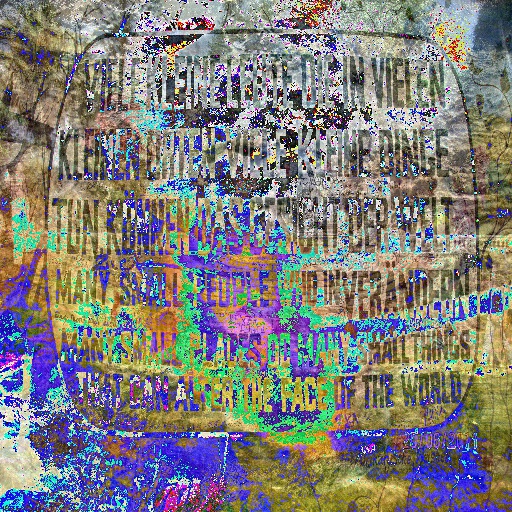 VIELE KLEINE LEUTE DIE IN VIELEN
KLEINEN ORTEN VIELE KLEINE DINGE
TUN KÖNNEN DAS GESICHT DER WELT
MANY SMALL PEOPLE WHO IN VERÄNDERN
MANY SMALL PLACES DO MANY SMALL THINGS
THAT CAN ALTER THE FACE OF THE WORLD